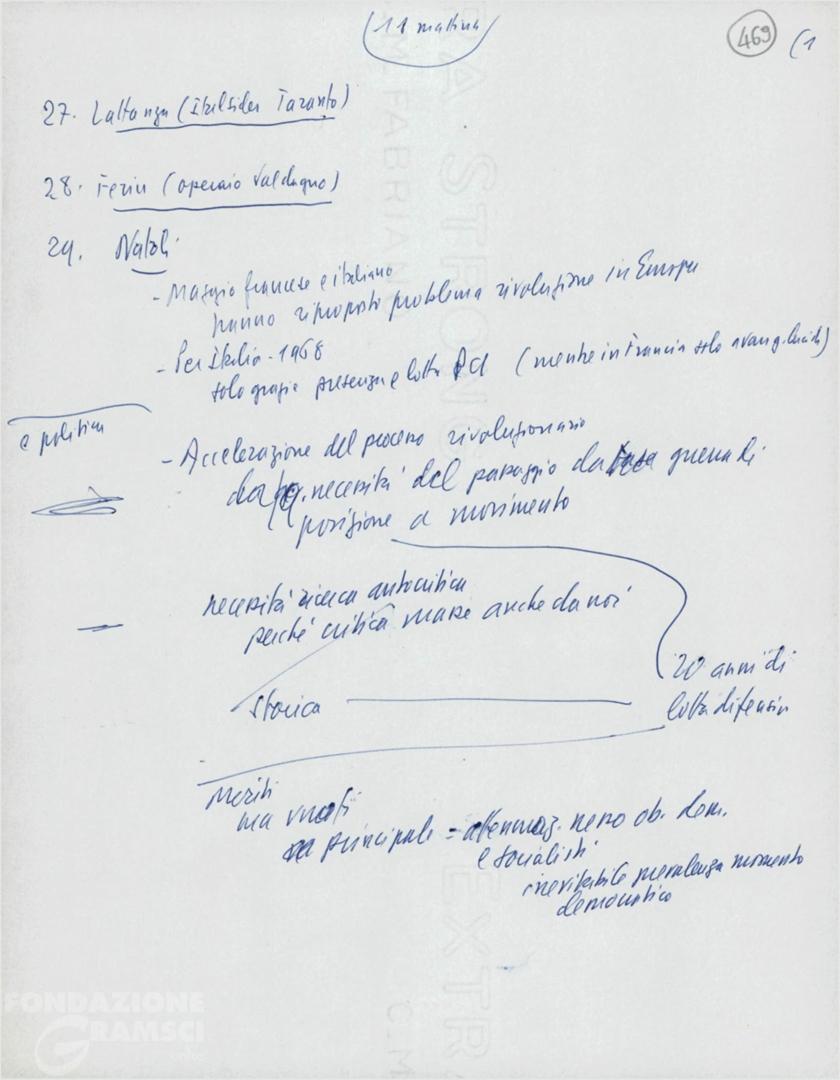 (11 mattina)
469 (1
27. Lattanza (Italsider Taranto)
28. (operaio Valdagno)
29. Natoli
- Maggio francese e italiano
hanno riproposto problema rivoluzione in Europa
- Per Italia - 1968
solo grazie presenza e lotta PCI (mentre in Francia solo avang.
e politica
- Accelerazione del processo rivoluzionario
da necessità del passaggio da guerra di
posizione a movimento
necessità ricerca autocritica
perché critica mare anche da noi
Storica
20 anni di
lotta difensiva
Meriti
ma vuoti
principale = attenuaz. nesso ob. dem.
e socialisti
inevitabile prevalenza momento
democratico
FONDAZIONE
GRAMSCI